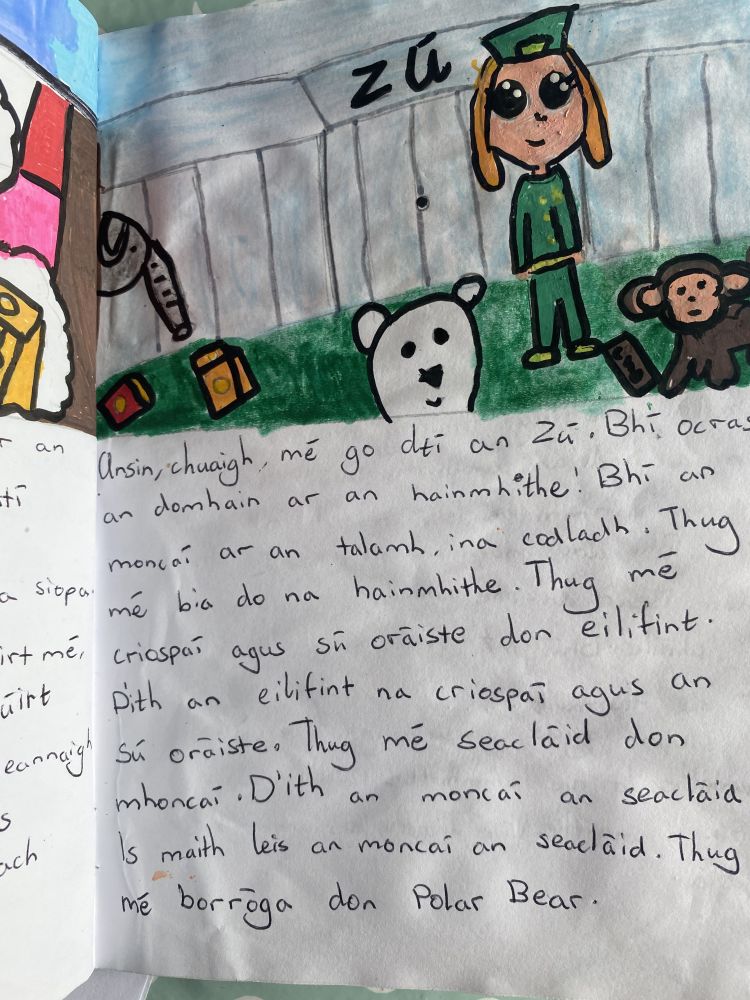 r an
tí
a siopa.
irt mé,
úirt
eannaigh
s
ach
ZÚ
Ansin, chuaigh, mé go dtí an Zú. Bhí ocras
an domhain ar an hainmhithe! Bhí an
moncaí ar an talamh, ina codladh. Thug
mé bia do na hainmhithe. Thug mé
criospaí agus sú oráiste don eilifint.
D'ith an eilifint na criospaí agus an
sú oráiste. Thug mé seacláid don
mhoncaí. D'ith an moncaí an seacláid
Is maith leis an moncaí an seacláid. Thug
mé borróga don Polar Bear.